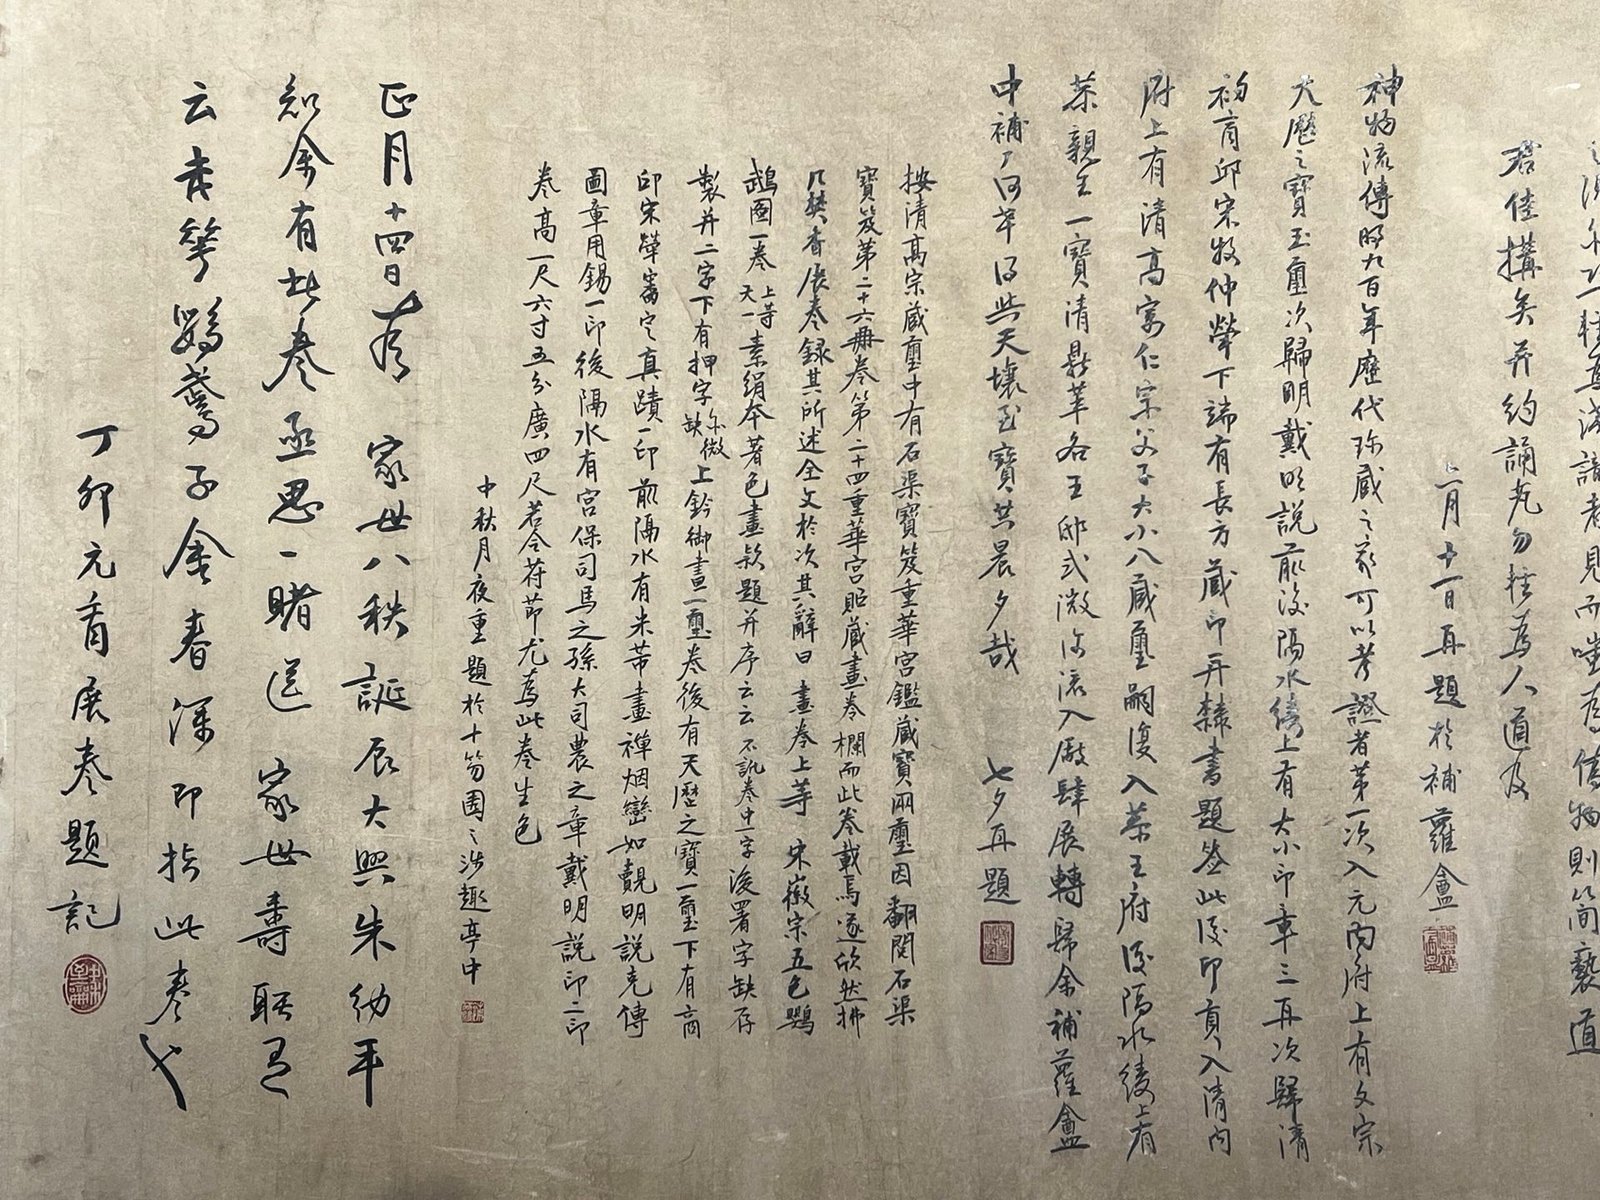 君佳搆矣并約誦先勿揰為人道及
上月十一日再題於補蘿盦
神物流傳將九百年歷代珍藏之家可以考證者第一次入元內府上有文宗
天曆之寶玉璽次歸明戴明說前後隔水綾上有大小印章三再次歸清
初商邱宋牧仲犖下端有長方藏印并隸書題簽此後印貢入清內
府上有清高宗仁宗父子大小八藏璽嗣復入恭王府後隔水綾上有
恭親王一寶清鼎革各王邸式微泝流入廠肆展轉歸余補蘿盦
中補丁何年得此天壤至寶共晨夕哉 七夕再題
按清高宗藏璽中有石渠寶笈重華宮鑑藏寶兩璽因翻閱石渠
寶笈第二十六冊卷第二十四重華宮貯藏畫卷欄而此卷載焉遂欣然拂
几焚香展卷錄其所述全文於次其辭曰畫卷上等 宋徽宗五色鸚
鵡圖一卷上等天一素絹本著色畫款題并序云云不訛卷中一字後署字缺存
製并二字下有押字缺上鈐御書一璽卷後有天曆之寶一璽下有商
印宋犖審定真蹟一印前隔水有米芾畫禪烟巒如覿明說克傳
圖章用錫一印後隔水有宮保司馬之孫大司農之章戴明說印二印
卷高一尺六寸五分廣四尺若合符節尤為此卷生色
中秋月夜重題於十笏園之涉趣亭中
正月十四日為 家世八秩誕辰大興朱幼平
知余有此卷亟思一睹送 家世壽聯有
云青華鸚鵞子金春深即指此卷也
丁卯元宵展卷題記